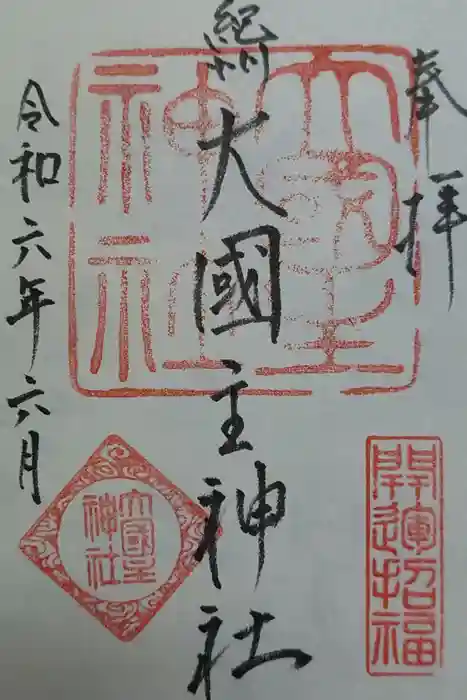 奉拝
紀州
大國主神社
令和六年六月
大國主神社
開運招福
大國主神社